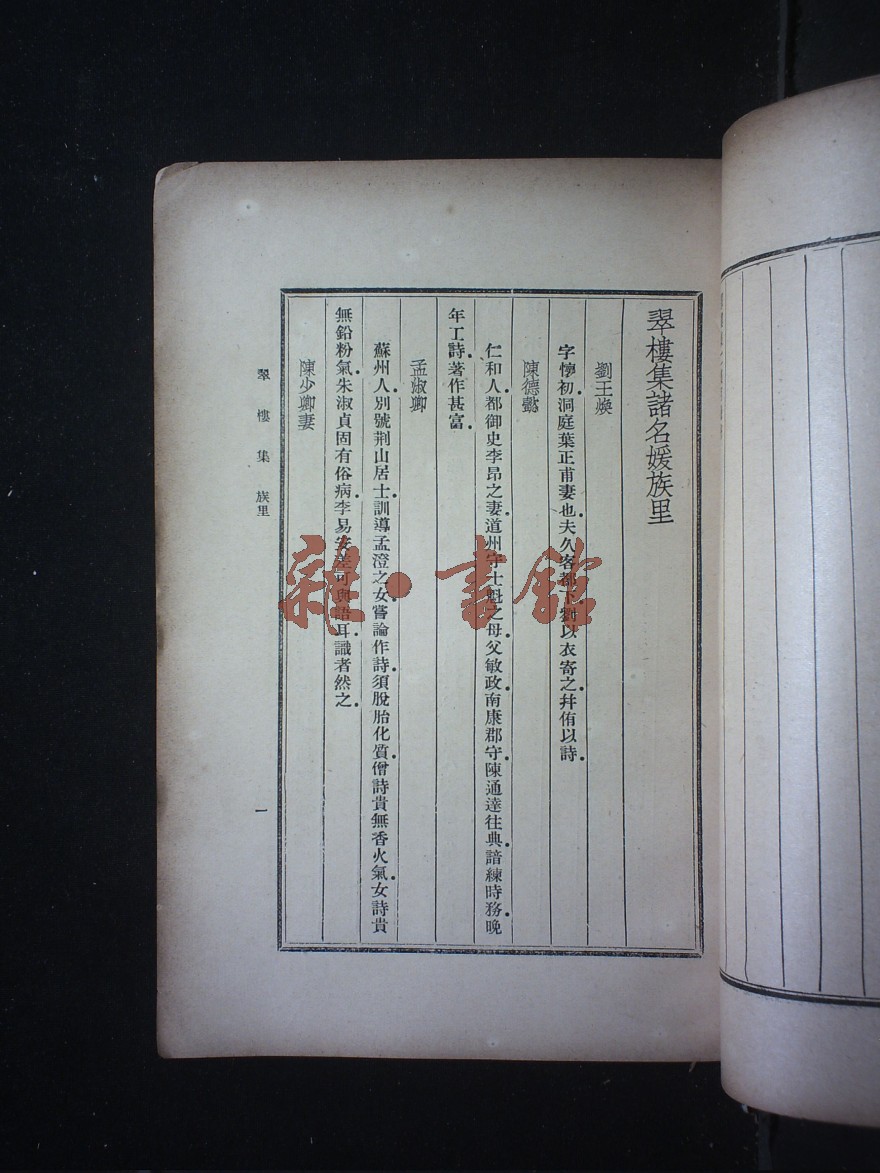 翠樓集諸名媛族里
劉王煥
字懷初洞庭葉正甫妻也夫久客都下劉以衣寄之幷侑以詩
陳德懿
仁和人都御史李昂之妻道州守士魁之母父敏政南康郡守陳通達往典諳練時務晚
年工詩著作甚富
孟淑卿
蘇州人別號荆山居士訓導孟澄之女嘗論作詩須脫胎化質僧詩貴無香火氣女詩貴
無鉛粉氣朱淑貞固有俗病李易安差可與語耳識者然之
陳少卿妻
翠樓集 族里
一
雜·書館